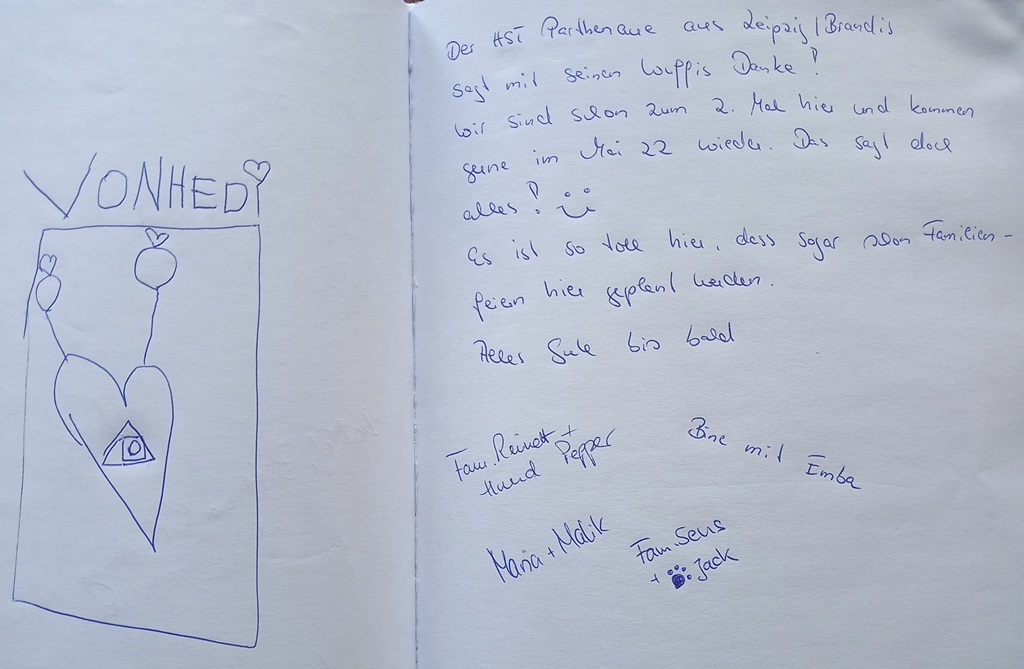 VON HEDI
Der HST Parthenaue aus Leipzig/Brandis
sagt mit seinen Wuffis Danke!
Wir sind schon zum 2. Mal hier und kommen
gerne im Mai 22 wieder. Das sagt doch
alles!
Es ist so toll hier, dass sogar schon Familien-
feiern hier geplant werden.
Alles Gute bis bald
Fam. Reinelt +
Hund Pepper
Bine mit Emba
Maria + Malik
Fam. Sens
+ Jack